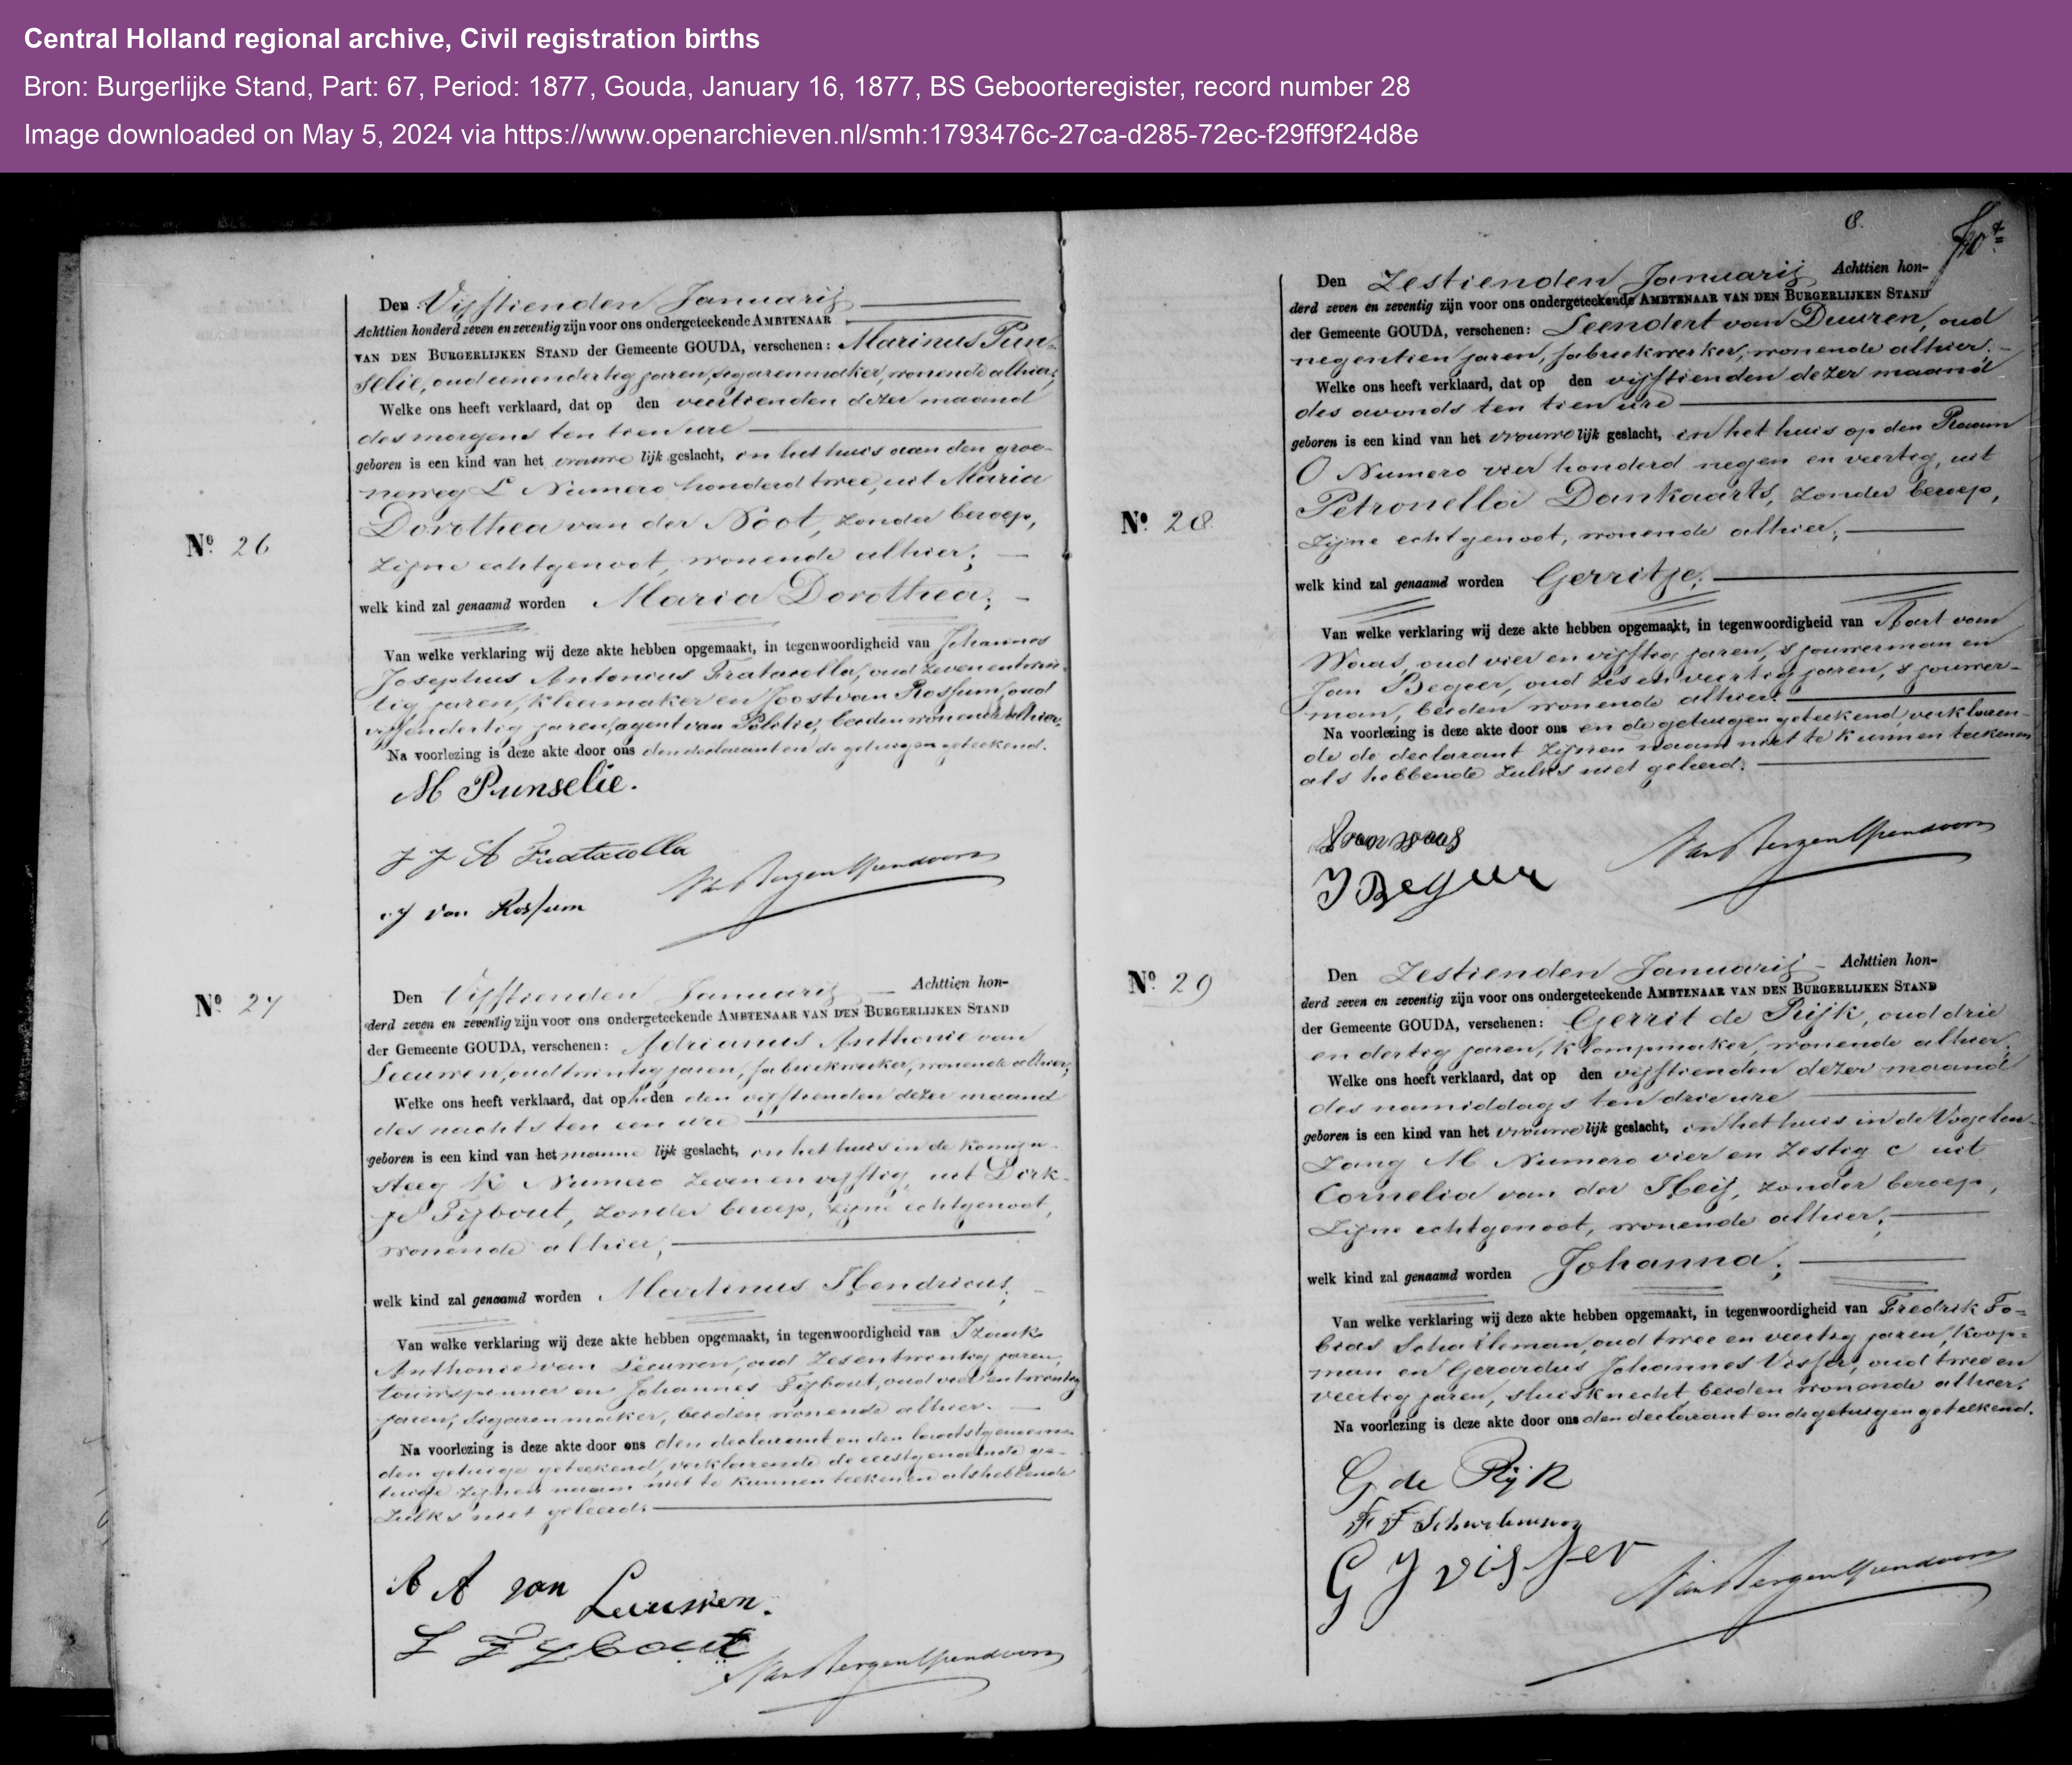 Central Holland regional archive, Civil registration births
Bron: Burgerlijke Stand, Part: 67, Period: 1877, Gouda, January 16, 1877, BS Geboorteregister, record number 28
Image downloaded on May 5, 2024 via https://www.openarchieven.nl/smh:1793476c-27ca-d285-72ec-f29ff9f24d8e
Nº 26
Den Vijftienden Januarij
Achttien honderd zeven en zeventig zijn voor ons ondergeteekende AMBTENAAR
VAN DEN BURGERLIJKEN STAND der Gemeente GOUDA, verschenen: Marinus Pun-
selie, oud eenendertig jaren, sigarenmaker, wonende alhier;
Welke ons heeft verklaard, dat op den veertienden dezer maand
des morgens ten tien ure
geboren is een kind van het vrouwelijk geslacht, in het huis aan den groe-
neweg L Numero honderd twee, uit Maria
Dorothea van der Noot, zonder beroep,
zijne echtgenoot, wonende alhier;
welk kind zal genaamd worden Maria Dorothea;
Van welke verklaring wij deze akte hebben opgemaakt, in tegenwoordigheid van Johannes
Josephus Antonius Fratacolla, oud zeven en twin-
tig jaren, kleermaker en Joost van Rossum, oud
vijfendertig jaren, agent van Politie, beiden wonende alhier.
Na voorlezing is deze akte door ons den declarant en de getuigen geteekend.
M Punselie.
J J A Fratacolla
J van Rossum
Nº 27
Den Vijftienden Januarij Achttien hon-
derd zeven en zeventig zijn voor ons ondergeteekende AMBTENAAR VAN DEN BURGERLIJKEN STAND
der Gemeente GOUDA, verschenen: Adrianus Anthonie van
Leeuwen, oud twintig jaren, fabriekwerker, wonende alhier;
Welke ons heeft verklaard, dat op heden den vijftienden dezer maand
des nachts ten een ure
geboren is een kind van het mannelijk geslacht, in het huis in de Komijn-
steeg K Numero zeven en vijftig, uit Dirk-
je Tijbout, zonder beroep, zijne echtgenoot,
wonende alhier;
welk kind zal genaamd worden Martinus Hendricus;
Van welke verklaring wij deze akte hebben opgemaakt, in tegenwoordigheid van Izaak
Anthonie van Leeuwen, oud zesentwintig jaren,
touwspinner en Johannes Tijbout, oud vier en twintig
jaren, sigarenmaker, beiden wonende alhier.
Na voorlezing is deze akte door ons den declarant en den laatstgenoem-
den getuige geteekend, verklarende de eerstgenoemde ge-
tuige zijnen naam niet te kunnen teekenen als hebbende
zulks niet geleerd.
A A van Leeuwen.
Tijbout
8.
Nº 28
Den Zestienden Januarij Achttien hon-
derd zeven en zeventig zijn voor ons ondergeteekende AMBTENAAR VAN DEN BURGERLIJKEN STAND
der Gemeente GOUDA, verschenen: Leendert van Duuren, oud
negentien jaren, fabriekwerker, wonende alhier;
Welke ons heeft verklaard, dat op den vijftienden dezer maand
des avonds ten tien ure
geboren is een kind van het vrouwelijk geslacht, in het huis op den Raam
O Numero vier honderd negen en veertig, uit
Petronella Dankaarts, zonder beroep,
zijne echtgenoot, wonende alhier;
welk kind zal genaamd worden Gerritje;
Van welke verklaring wij deze akte hebben opgemaakt, in tegenwoordigheid van Aart van
Waas, oud vier en vijftig jaren, sjouwerman en
Jan Begeer, oud zes en veertig jaren, sjouwer-
man, beiden wonende alhier.
Na voorlezing is deze akte door ons en de getuigen geteekend, verklaren-
de de declarant zijnen naam niet te kunnen teekenen
als hebbende zulks niet geleerd.
A van waas
J Begeer
Nº 29
Den Zestienden Januarij Achttien hon-
derd zeven en zeventig zijn voor ons ondergeteekende AMBTENAAR VAN DEN BURGERLIJKEN STAND
der Gemeente GOUDA, verschenen: Gerrit de Rijk, oud drie
en dertig jaren, klompmaker, wonende alhier;
Welke ons heeft verklaard, dat op den vijftienden dezer maand
des namiddags ten drie ure
geboren is een kind van het vrouwelijk geslacht, in het huis in de Vogelen-
zang M Numero vier en zestig c uit
Cornelia van der Heij, zonder beroep,
zijne echtgenoot, wonende alhier;
welk kind zal genaamd worden Johanna;
Van welke verklaring wij deze akte hebben opgemaakt, in tegenwoordigheid van Fredrik To-
bias Schatleman, oud twee en veertig jaren, koop-
man en Gerardus Johannes Visser, oud twee en
veertig jaren, sluisknecht beiden wonende alhier.
Na voorlezing is deze akte door ons den declarant en de getuigen geteekend.
G de Rijk
G J visser